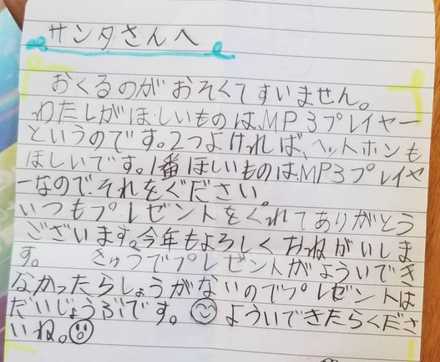 サンタさんへ
おくるのがおそくてすいません。
わたしがほしいものは、MP3プレイヤー
というのです。2つよければ、ヘットホンも
ほしいです。1番ほしいものは、MP3プレイヤ
ーなのでそれをください。
いつもプレゼントをくれてありがとう
ございます。今年もよろしくおねがいしま
す。 きゅうでプレゼントがよういでき
なかったらしょうがないのでプレゼントは
だいじょうぶです。 よういできたらくださ
いね。